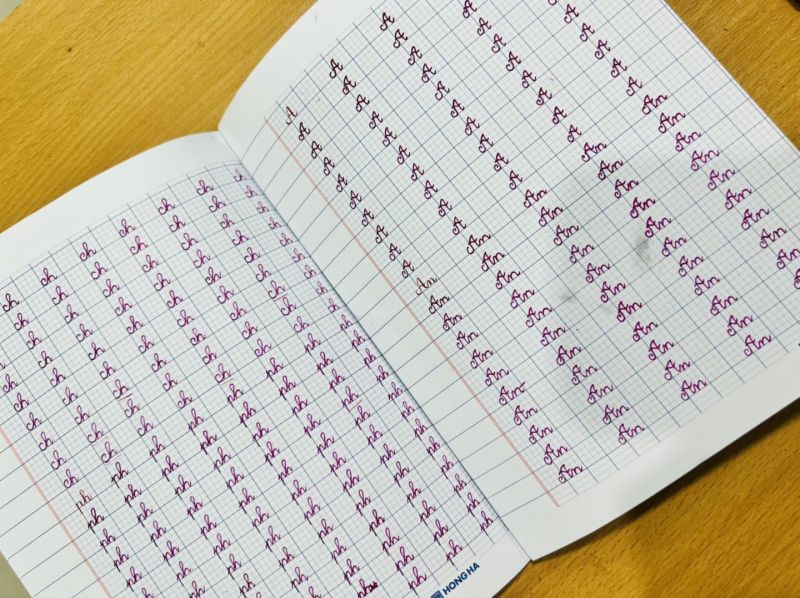 ch ch ch ch ch ch ch
ch ch ch ch ch ch ch
ch ch ch ch ch ch ch
ch ch ch ch ch ch ch
ch ch ch ch ch ch ch ch
ch ch ch ch ch ch ch ch
ch ch ch ch ch ch ch ch
ch ch ch ch ch ch ch ch
ch ch ch ch ch ch ch ch
ph ph ph ph ph ph ph ph
ph ph ph ph ph ph ph ph
ph ph ph ph ph ph ph ph
ph ph ph ph ph ph ph ph
ph ph ph ph ph ph ph ph
ph ph ph ph ph ph ph
ph ph ph ph ph ph
ph ph ph ph ph
ph ph ph ph
ph ph ph
ph ph
HONG HA
A A A
A A A
A A A A
A A A A
A A A A
A A A A A
A A A A A
A A A A A
A A A A A
A A A A A
An An An An An
An An An An An
An An An An An
An An An An An
An An An An An
An An An An An
An An An An An
An An An An An
An An An An An
An An An An
An An An An